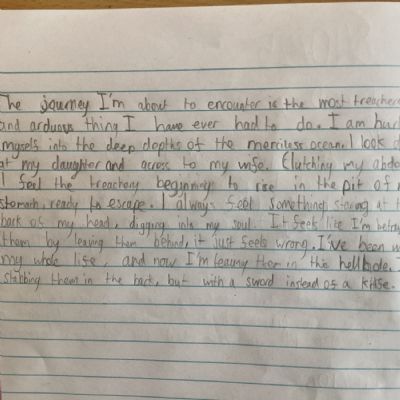 The journey I'm about to encounter is the most
and arduous thing I have ever had to do. I am
myself into the deep depths of the merciless ocean. I look
at my daughter and across to my wife. Clutching my
I feel the treachery beginning to rise in the pit of
stomach, ready to escape. I always feel something staring at
back of my head, digging into my soul. It feels like I'm
them by leaving them behind, it just feels wrong. I've been
my whole life, and now I'm leaving in this hellhole.
stabbing them in the back, but with a sword instead of a